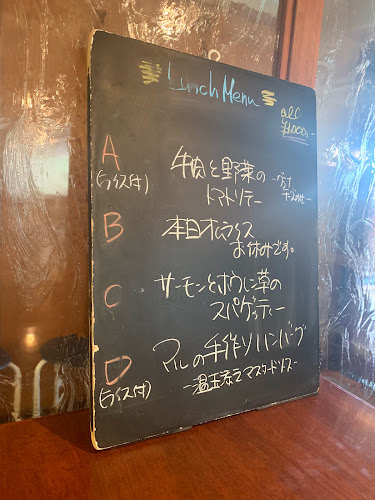 Lunch Menu
all
¥1000,-
A
(ライス付)
牛肉と野菜の
トマトソテー
チーズのせ-
B
本日オムライス
お休みです。
C
サーモンとホウレン草の
スパゲッティー
D
(ライス付)
マルの手作りハンバーグ
-温玉添えマスタードソース-